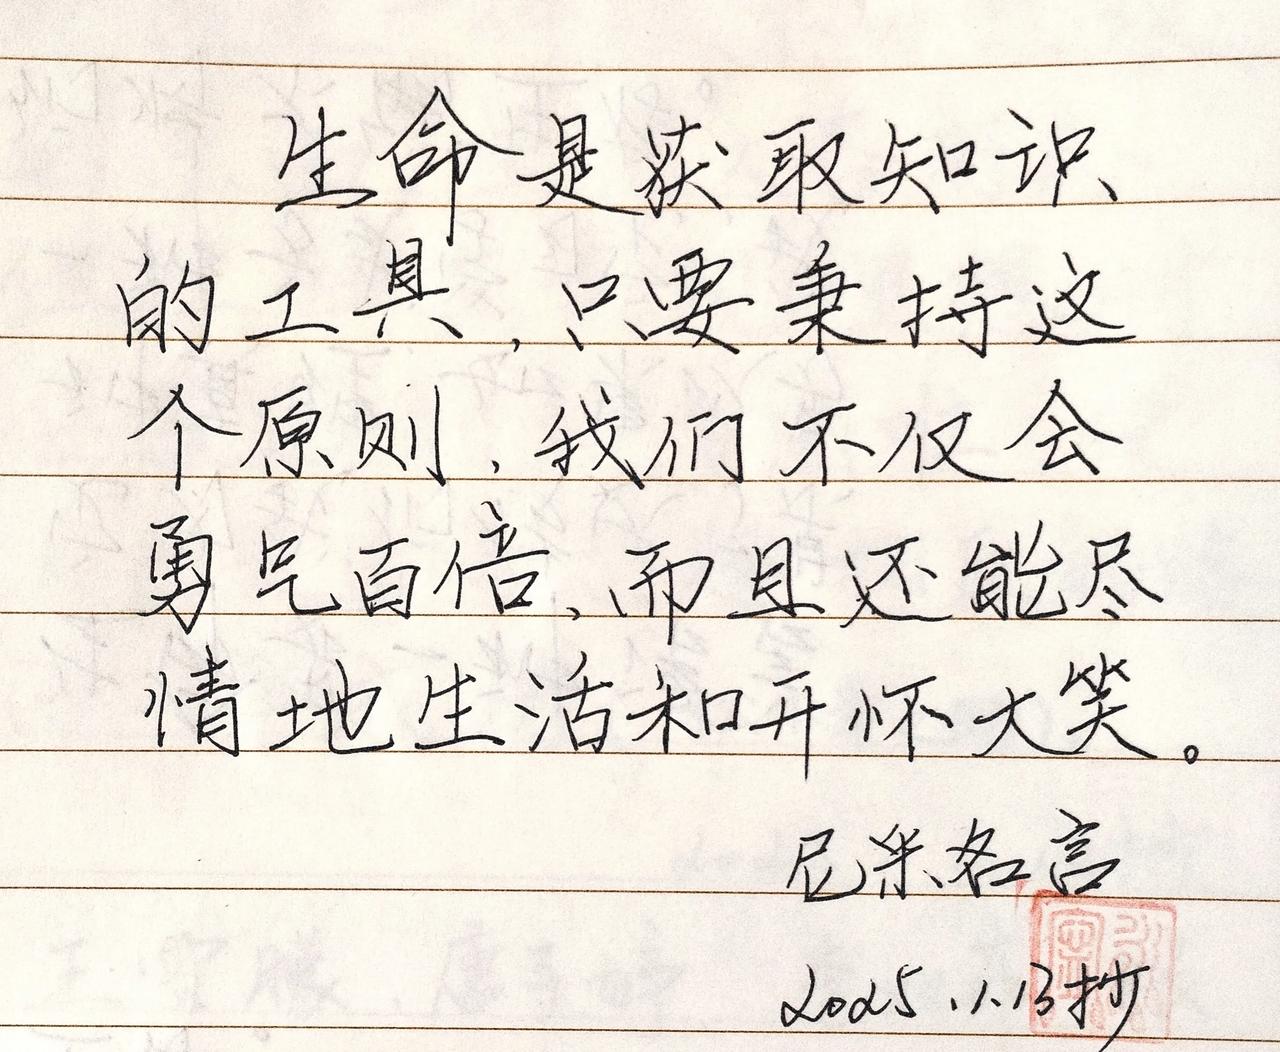 生命是获取知识
的工具,只要秉持这
个原则,我们不仅会
勇气百倍,而且还能尽
情地生活和开怀大笑。
尼采名言
2025.1.13抄